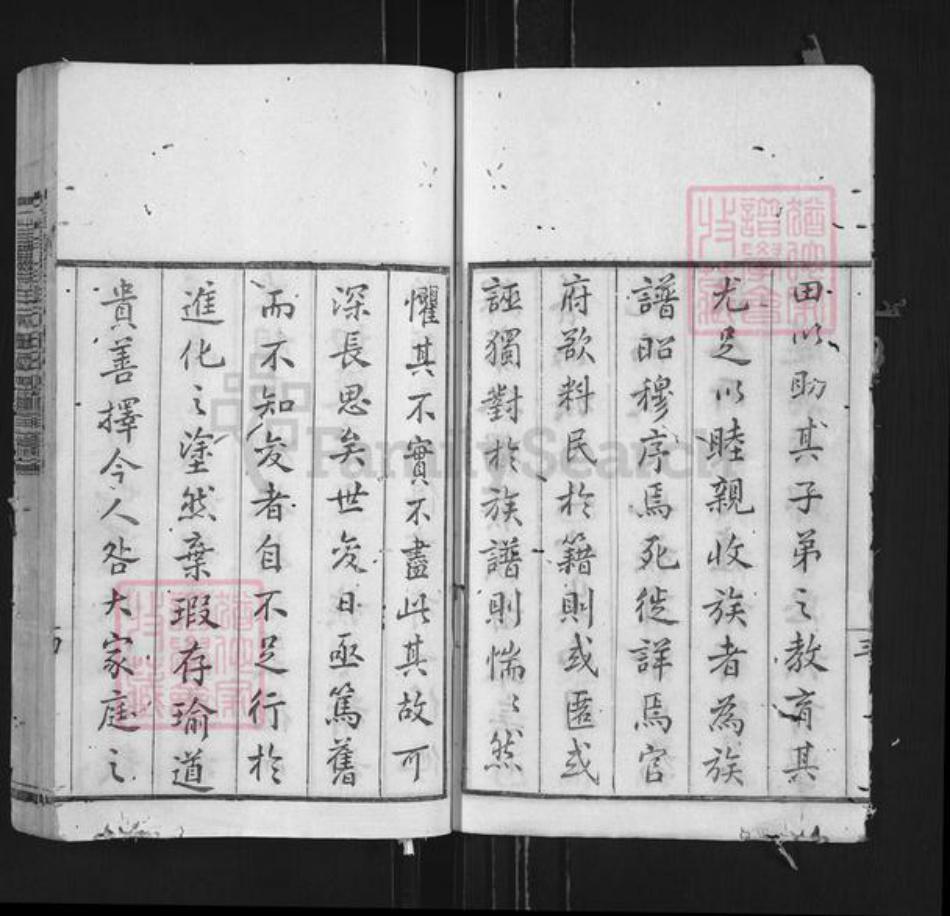 田以助其子弟之教育其
尤足以睦親收族者為族
譜昭穆序焉死徙詳焉官
府欲料民於籍則或匿或
誣獨對於族譜則惴〻然
懼其不實不盡此其故可
深長思矣世变日亟篤舊
而不知变者自不足行於
進化之塗然棄瑕存瑜道
貴善擇今人咎大家庭之
三
FamilySearch